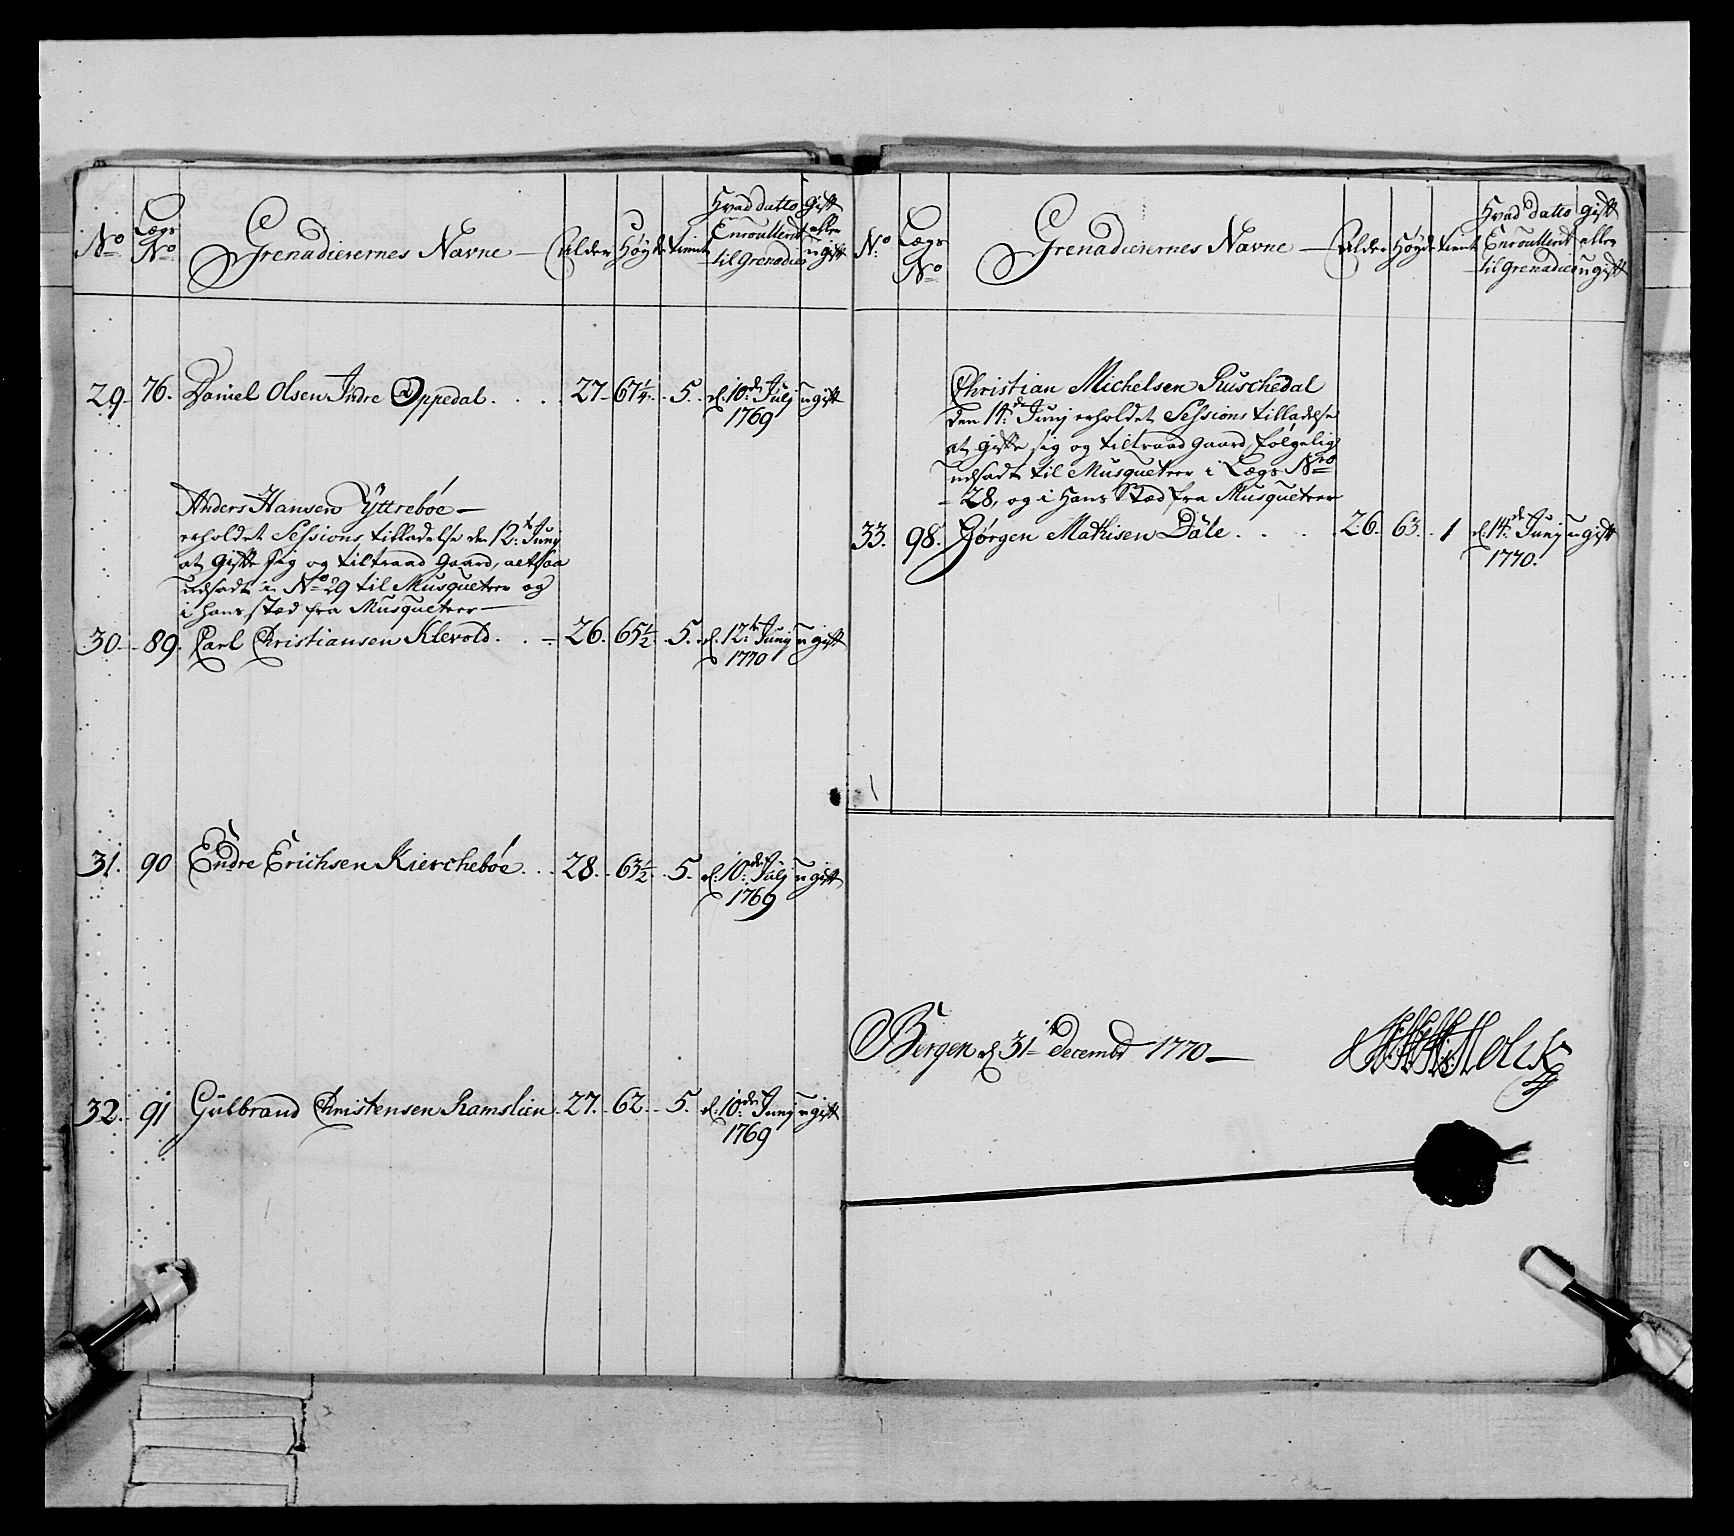 No
Lægs No
Grenadierernes Navne
Alder
Høyde
tient
Hvad datto Enroullerdt til Grenadier
gift eller ugift
29. 76. Daniel Olsen Indre Oppedal. 27. 67¼. 5. d. 10de Julj 1769 ugift
Anders Hansen Yttrebøe
erholdet Sessions tilladelse den 12te Junj
at gifte sig og tiltraad Gaard, altsaa
udsadt i No 29 til Musqueteer og
i hans stæd fra Musqueteer
30. 89. Carl Christiansen Klevold. 26. 65½. 5. d. 12te Junj 1770 ugift
31. 90 Endre Erichsen Kierchebøe. 28. 63½. 5. d. 10de Julj 1769 ugift
32. 91 Gulbrand Christensen Ramslien 27. 62. 5. d. 10de Junj 1769 ugift
No
Lægs No
Grenadierernes Navne
Alder
Høyde
tient
Hvad datto Enroullerdt til Grenadier
gift eller ugift
Christian Michelsen Ruschedal
den 14de Junj erholdet Sessions tilladelse
at gifte sig og tiltraad gaard, følgelig
udsadt til Musqueteer i Lægs Nro
28, og i Hans Stæd fra Musqueteer
33. 98. Jørgen Mathisen Dale. 26. 63. 1 d. 14de Junj 1770. ugift
Bergen d. 31te Decembr 1770